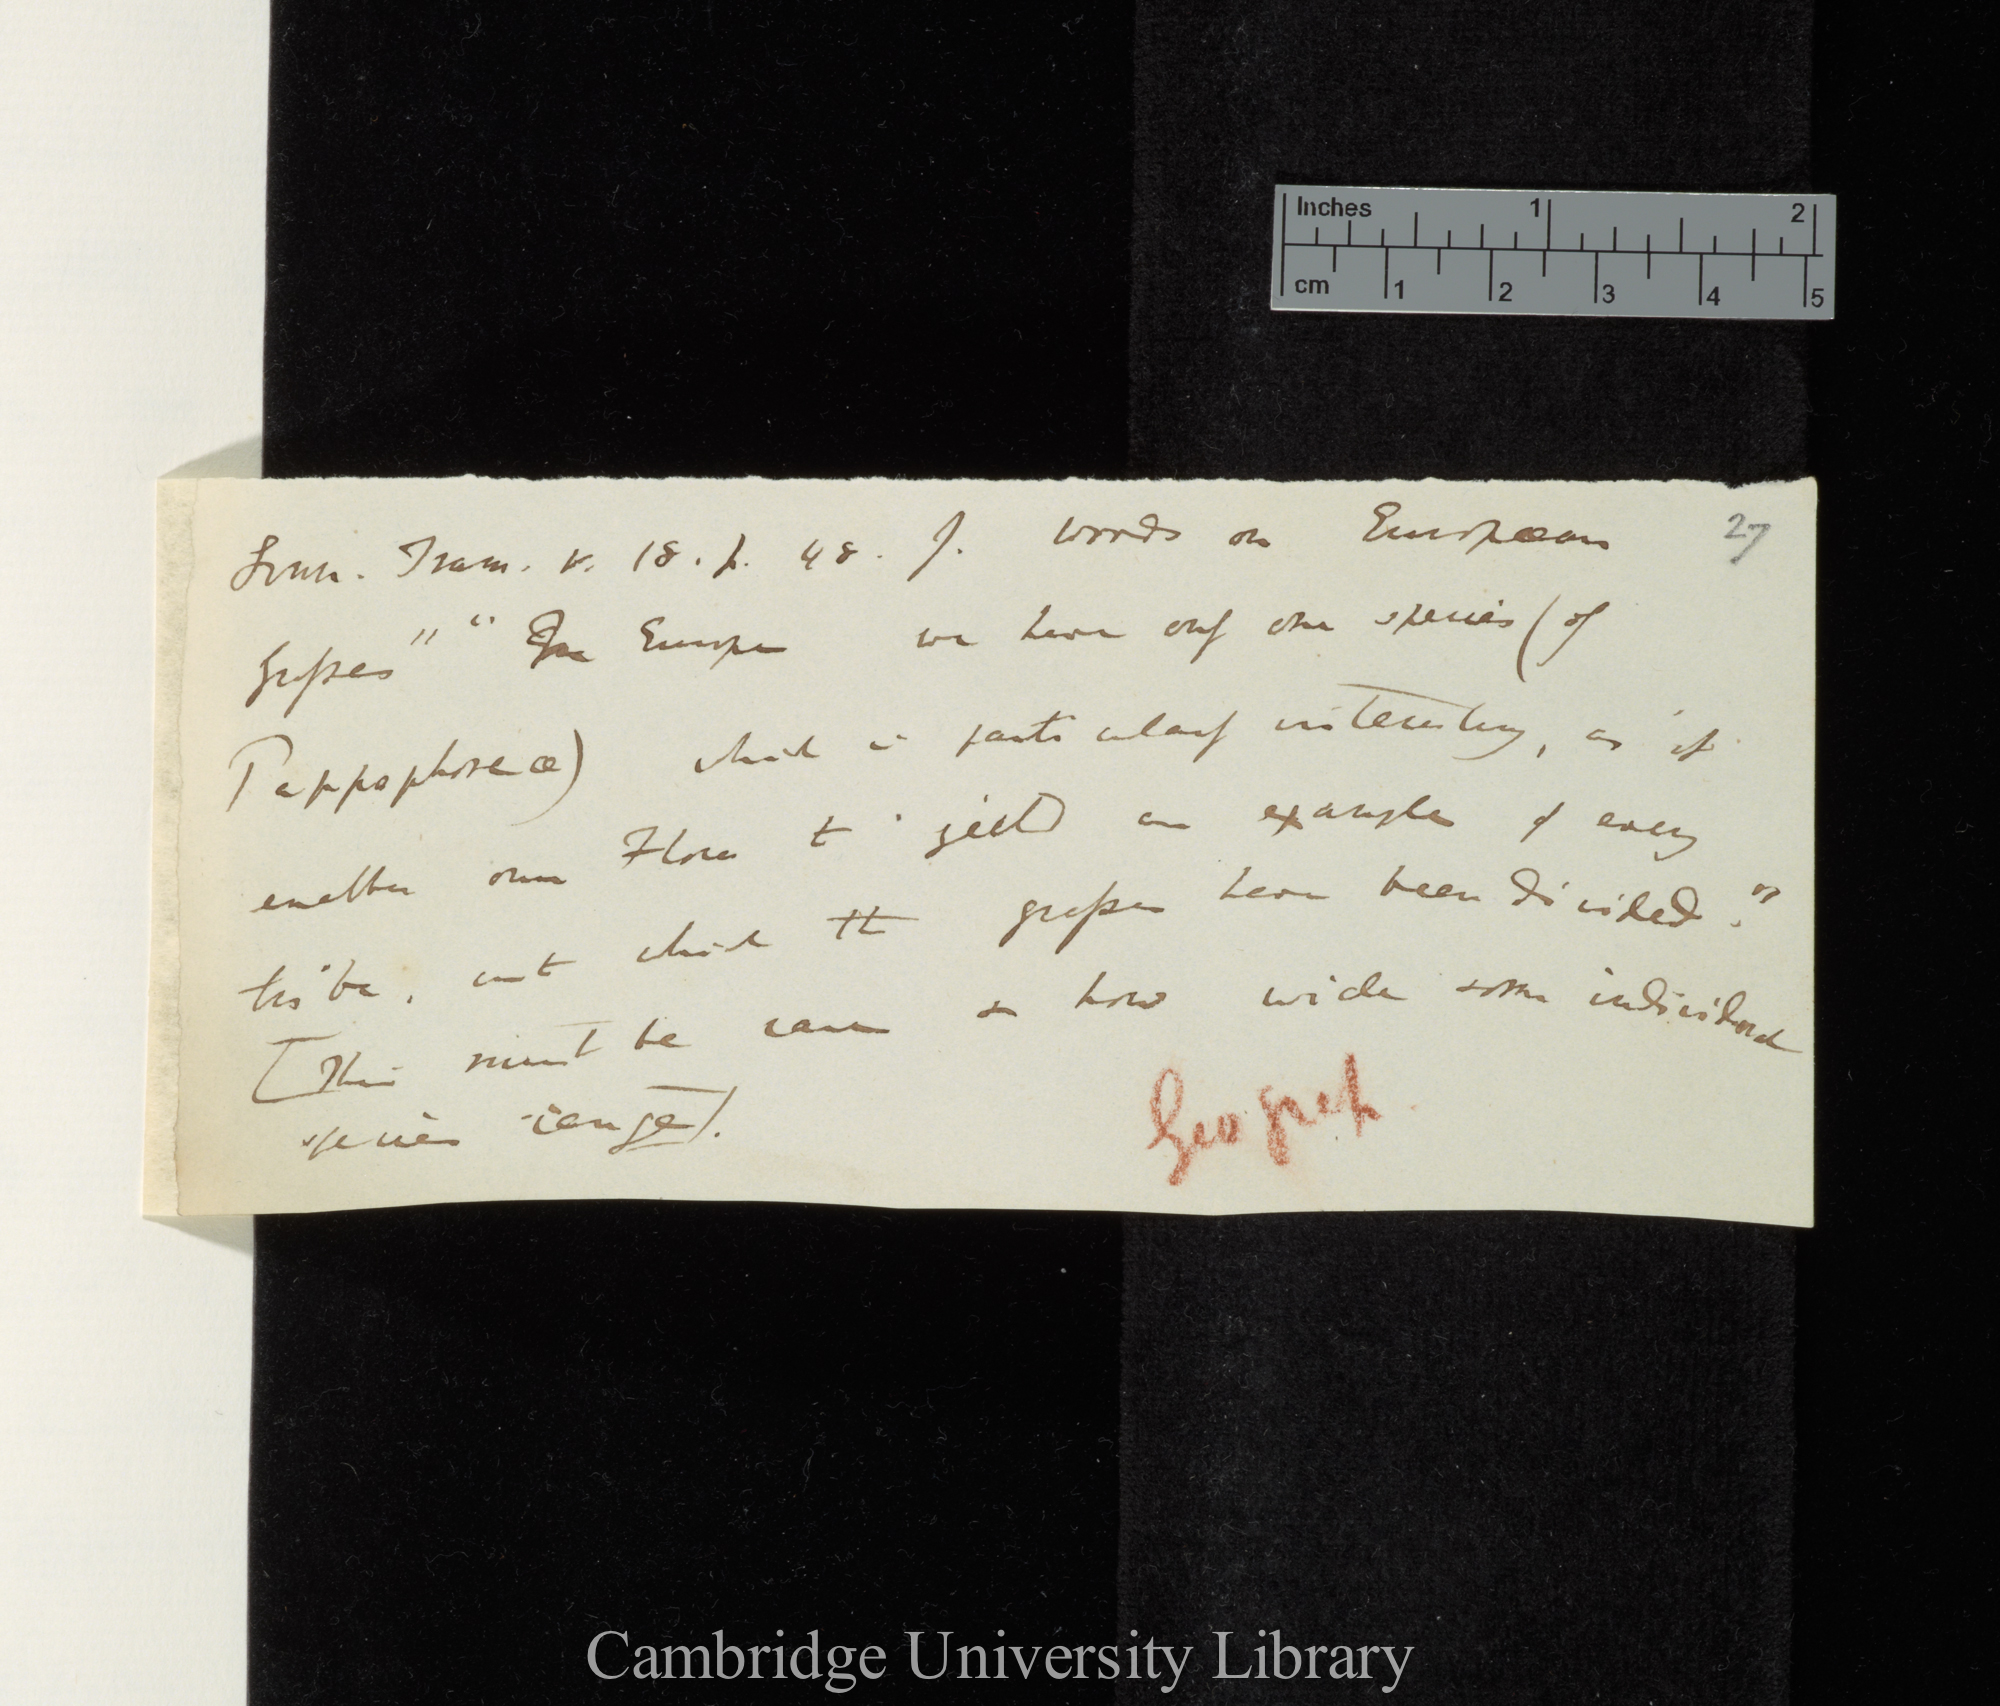 Inches 1 2
cm 1 2 3 4 5
27
Linn. Trans. v. 18. p. 48. J. Woods on European
Grasses" "In Europe we have only one species (of
Pappophoreæ) which is particularly interesting, as it
enables our Flora to yield an example of every
tribe, into which the grasses have been divided."
[This must be case & how wide some individual
species range].
Geograph
Cambridge University Library